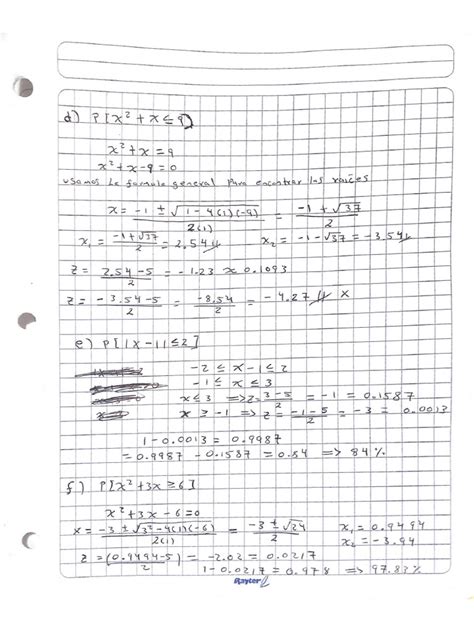 d) P[x² + x ≤ 9]
x² + x = 9
x² + x - 9 = 0
usamos la formula general para encontrar las raíces
x = -1 ± √1 - 4(1)(-9) / 2(1) = -1 ± √37 / 2
x₁ = -1 + √37 / 2 = 2.54 x₂ = -1 - √37 / 2 = -3.54
z = 2.54 - 5 / 2 = -1.23 ≈ 0.1093
z = -3.54 - 5 / 2 = -8.54 / 2 = -4.27 x
e) P[|x - 1| ≤ 2]
-2 ≤ x - 1 ≤ 2
-1 ≤ x ≤ 3
x ≤ 3 => z = 3 - 5 / 2 = -1 = 0.1587
x ≥ -1 => z = -1 - 5 / 2 = -3 = 0.0013
1 - 0.0013 = 0.9987
= 0.9987 - 0.1587 = 0.84 => 84%
f) P[x² + 3x ≥ 6]
x² + 3x - 6 = 0
x = -3 ± √3² - 4(1)(-6) / 2(1) = -3 ± √24 / 2 x₁ = 0.9494
x₂ = -3.94
z = (0.9494 - 5) / 2 = -2.02 = 0.0217
1 - 0.0217 = 0.978 => 97.83%
Rayter